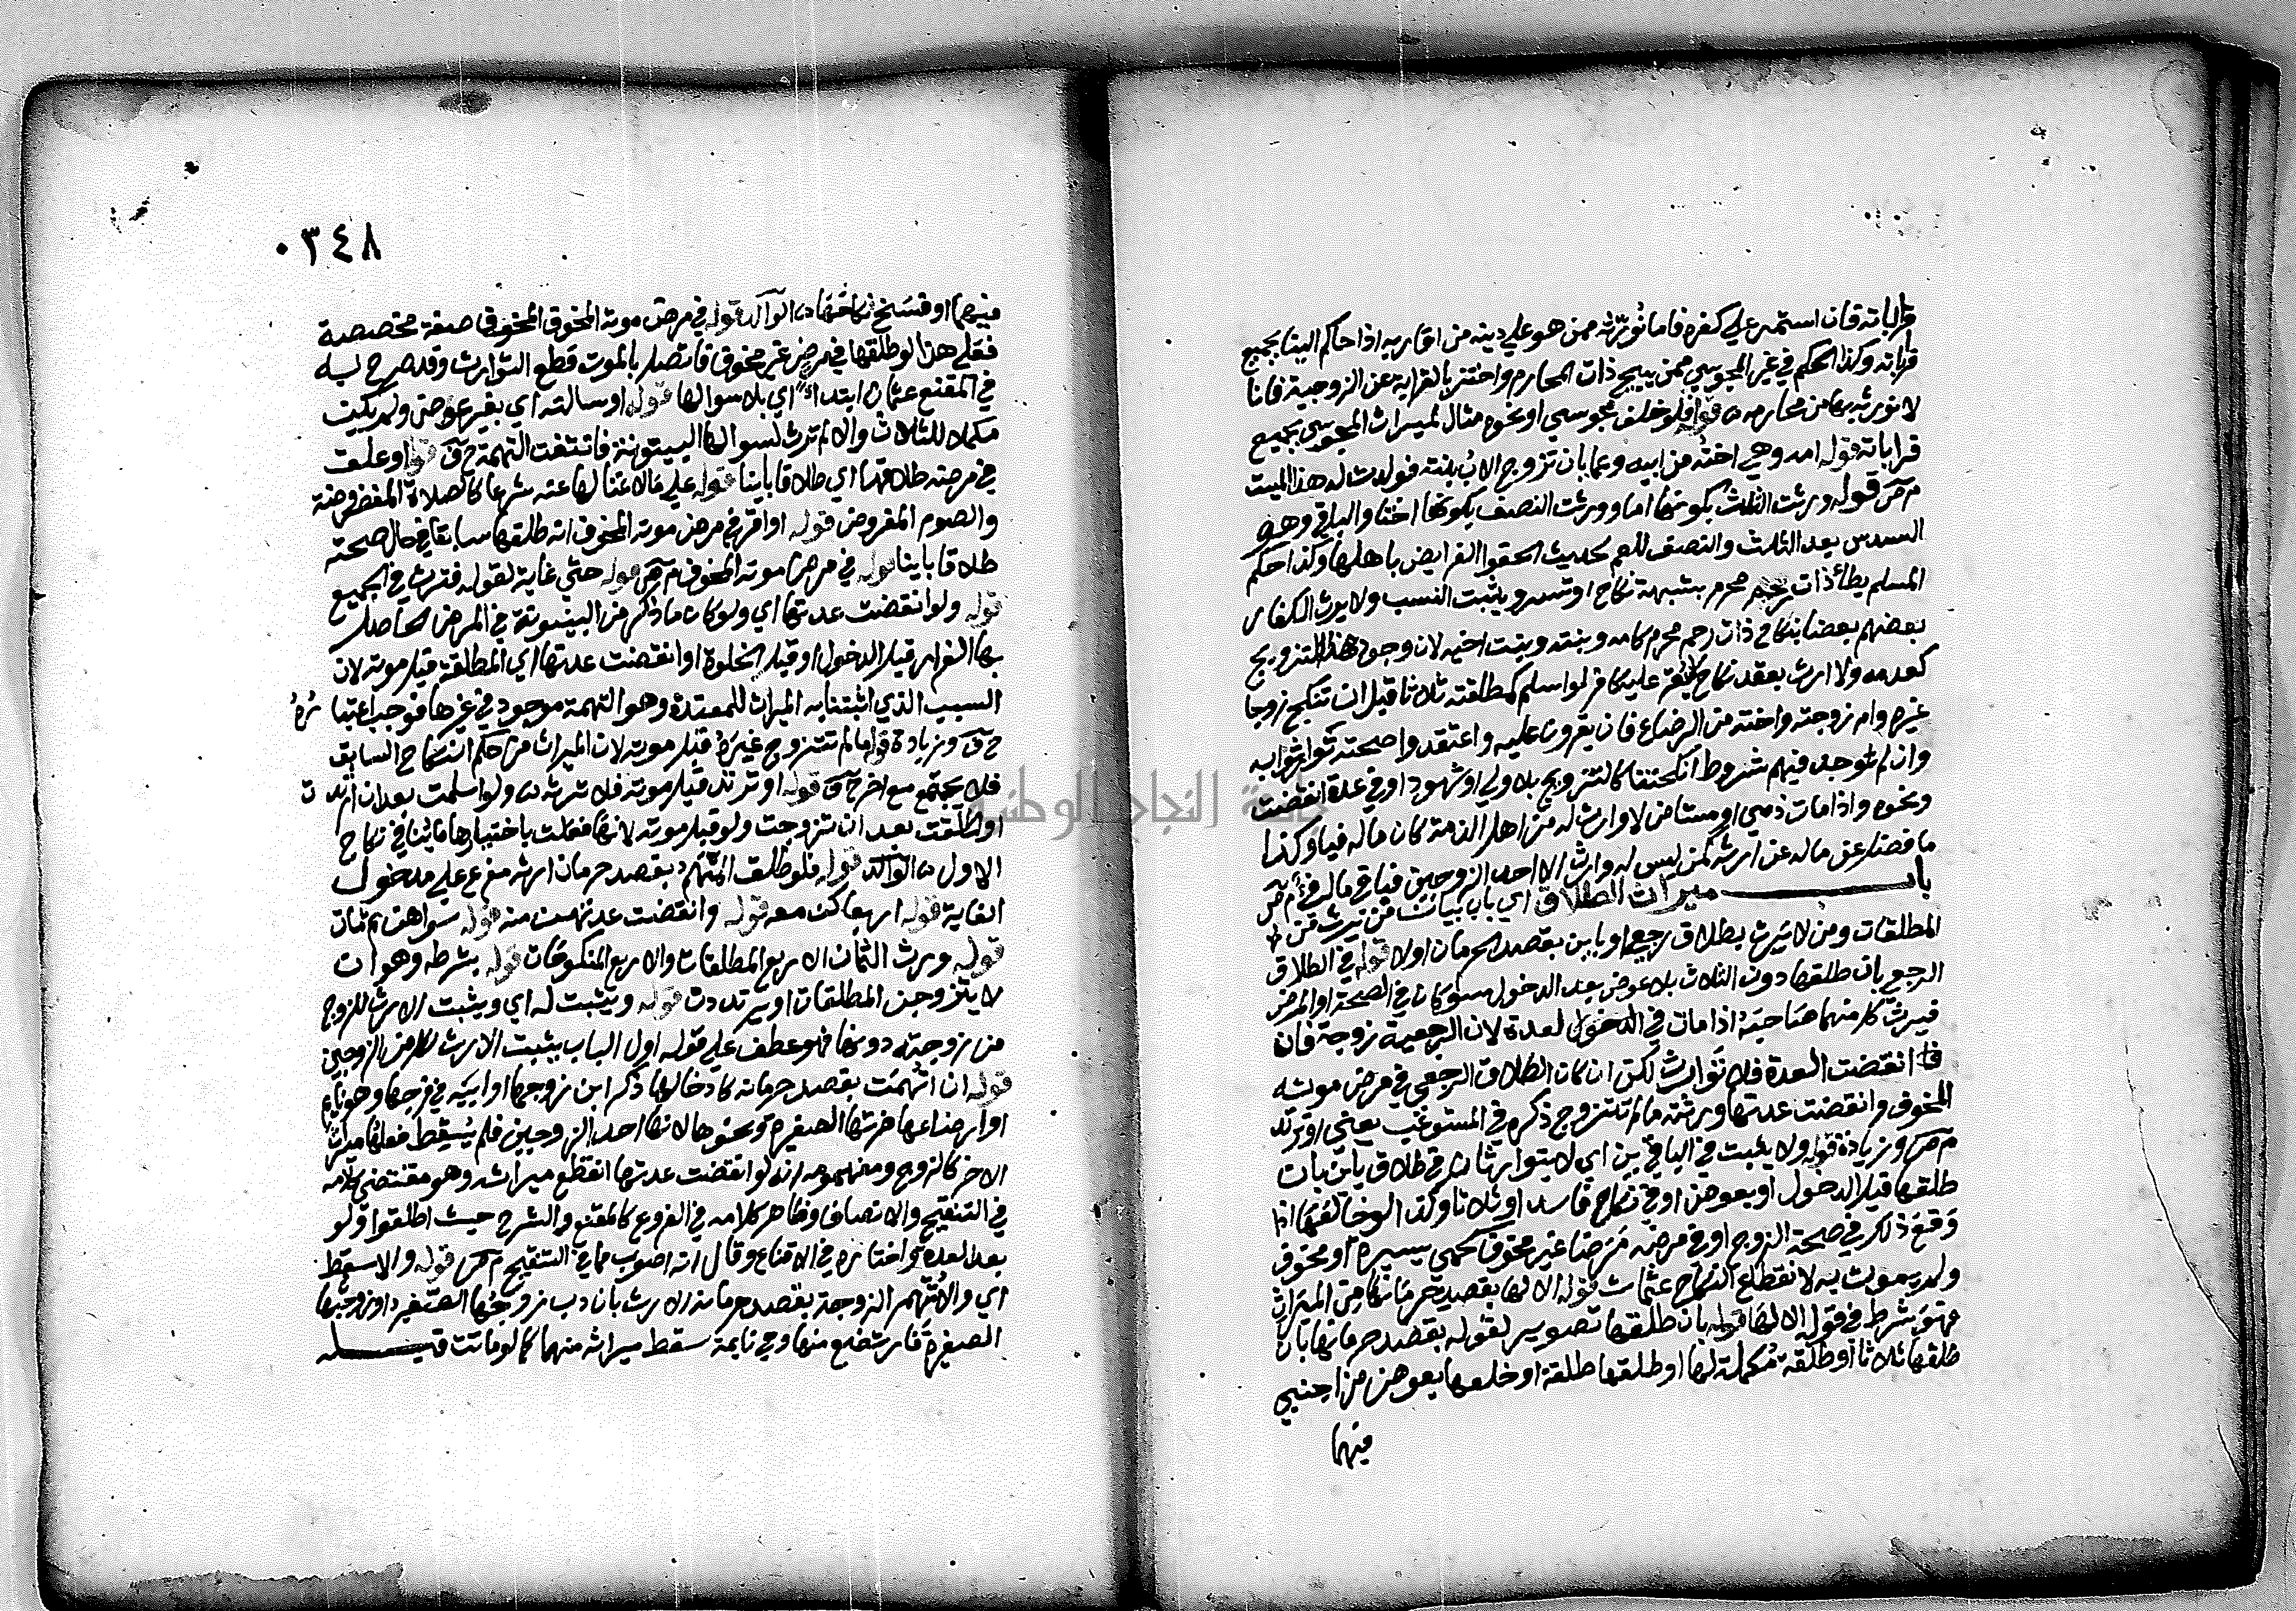 قراباته فان استمر علي كفره فاما نُورّثه ممن هو علي دينه من اقاربه اذا حاكم الينا بجميع
قراباته وكذا الحكم في غير المجوسي ممن يبيح ذات المحارم واحترز بالقرابة عن الزوجية فانا
لا نورثه بها من محارمه قوله فلو خلف مجوسي او نحوه مثال لميراث المجوسي بجميع
قراباته قوله امه وهي اخته من ابيه وعما بان تزوج الاب بنته فولدت له هذا الميت
م ص قوله ورثت الثلث بكونها اما وورثت النصف بكونها اختا والباقي وهو
السدس بعد الثلث والنصف للعم لحديث الحقوا الفرايض باهلها وكذا حكم
المسلم يطأ ذات رحم محرم بشبهة نكاح او تسر ويثبت النسب ولا يرث الكفار
بعضهم بعضا بنكاح ذات رحم محرم كامه وبنته وبنت اخيه لان وجود هذا التزويج
كعدمه ولا ارث بعقد نكاح لا يُقر عليه كافر لو اسلم كمطلقته ثلاثا قبل ان تنكح زوجا
غيره وام زوجته واخته من الرضاع فان يقرون عليه واعتقدوا صحته توارثوا به
وان لم توجد فيهم شروط انكحتنا كالتزويج بلا ولي او شهود او في عدة انقضت
ونحوه واذا مات ذمي او مستامن لا وارث له من اهل الذمة كان ماله فيا وكذا
ما فضل عن ماله عن ارثه كمن ليس له وارث الا احد الزوجين فباقي ماله فئ م ص
باب ميراث المطلقة اي باب بيان من يرث من
المطلقات ومن لا يرث بطلاق رجعي او باين بقصد الحرمان اولا قوله في الطلاق
الرجعي بان طلقها دون الثلاث بلا عوض بعد الدخول سوا كان في الصحة او المرض
فيرث كل منهما صاحبه اذا مات في العدة لان الرجعية زوجة فان
انقضت العدة فلا توارث لكن ان كان الطلاق الرجعي في مرض موته
المخوف وانقضت عدتها ورثته ما لم تتزوج ذكره في المستوعب يعني او ترتد
م ص وزيادة قوله ولا يثبت في الباين اي لا يتوارثان في طلاق باين بان
طلقها قبل الدخول او بعوض او في نكاح فاسد او ثلاثا وكذا لو خالعها اذا
وقع ذلك في صحة الزوج او في مرضه مرضا غير مخوف كحمي يسيرة او مخوف
ولم يمت به لانقطاع النكاح عثمان قوله الا لها بقصد حرمانها من الميراث
فهو شرط في قوله الا لها قوله بان طلقها تصوير لقوله بقصد حرمانها بان
طلقها ثلاثا او طلقة مُكملة لها او طلقها طلقة او خلعها بعوض من اجنبي
فيهما
٠٣٤٨
فيهما او فسخ نكاحها الوالد قوله في مرض موته المخوف المخوف صفة مخصصة
فعلي هذا لو طلقها في مرض غير مخوف فاتصل بالموت قطع التوارث وقد صرح به
في المقنع عثمان ابتداء اي بلا سوالها قوله او سالته اي بغير عوض ولم يكن
مكملا للثلاث والا لم ترث لسوالها البينونة فانتفت التهمة ح ف قوله او علق
في مرضه طلاقها اي طلاقا باينا قوله علي ما لا غنا لها عنه شرعا كالصلاة المفروضة
والصوم المفروض قوله او اقر في مرض موته المخوف انه طلقها سابقا في حال صحته
طلاقا باينا قوله في مرض موته المخوف م ص قوله حتي غاية لقوله فترث في الجميع
قوله ولو انقضت عدتها اي ولو كان ما ذكر من البينونة في المرض الحاصل
بها الفرار قبل الدخول او قبل الخلوة او انقضت عدتها اي المطلقة قبل موته لان
السبب الذي اثبتنا به الميراث للمعتدة وهو التهمة موجود في غيرها فوجب اعتباره
ح ف وزيادة قوله ما لم تتزوج غيره قبل موته لان الميراث من حكم النكاح السابق
فلا يجتمع مع اخر ح ف قوله او ترتد قبل موته فلا ترثه ولو اسلمت بعد ان ارتدت
او طلقت بعد ان تزوجت ولو قبل موته لانها فعلت باختيارها ما ينافي نكاح
الاول الوالد قوله فلو طلق المتهم بقصد حرمان ارثه مفرع علي مدخول
الغاية قوله اربعا كن معه قوله وانقضت عدتهن منه قوله سواهن ثم مات
قوله ورث الثمان الاربع المطلقات والاربع المنكوحات قوله بشرطه وهو ان
لا يتزوجن المطلقات او يرتددن قوله ويثبت له اي ويثبت الارث للزوج
من زوجته دونها فهو عطف علي قوله اول الباب يثبت الارث لكل من الزوجين
قوله ان اتُهمت بقصد حرمانه كادخالها ذكر ابن زوجها او ابيه في فرجها وهو نايم
او ارضاعها ضرتها الصغيرة ونحوها لانها احد الزوجين فلم يُسقط فعلُها ميراث
الاخر كالزوج ومفهومه انه لو انقضت عدتها انقطع ميراثه وهو مقتضي كلامه
في التنقيح والانصاف وظاهر كلامه في الفروع كالمقنع والشرح حيث اطلقوا ولو
بعد العدة واختاره في الاقناع وقال انه اصوب مما في التنقيح م ص قوله والا سقط
اي والا تتهم الزوجة بقصد حرمانه الارث بان دب زوجُها الصغير او زوجتها
الصغيرة فارتضع منها وهي نايمة سقط ميراثه منها كما لو ماتت قبله
جامعة النجاح الوطنية